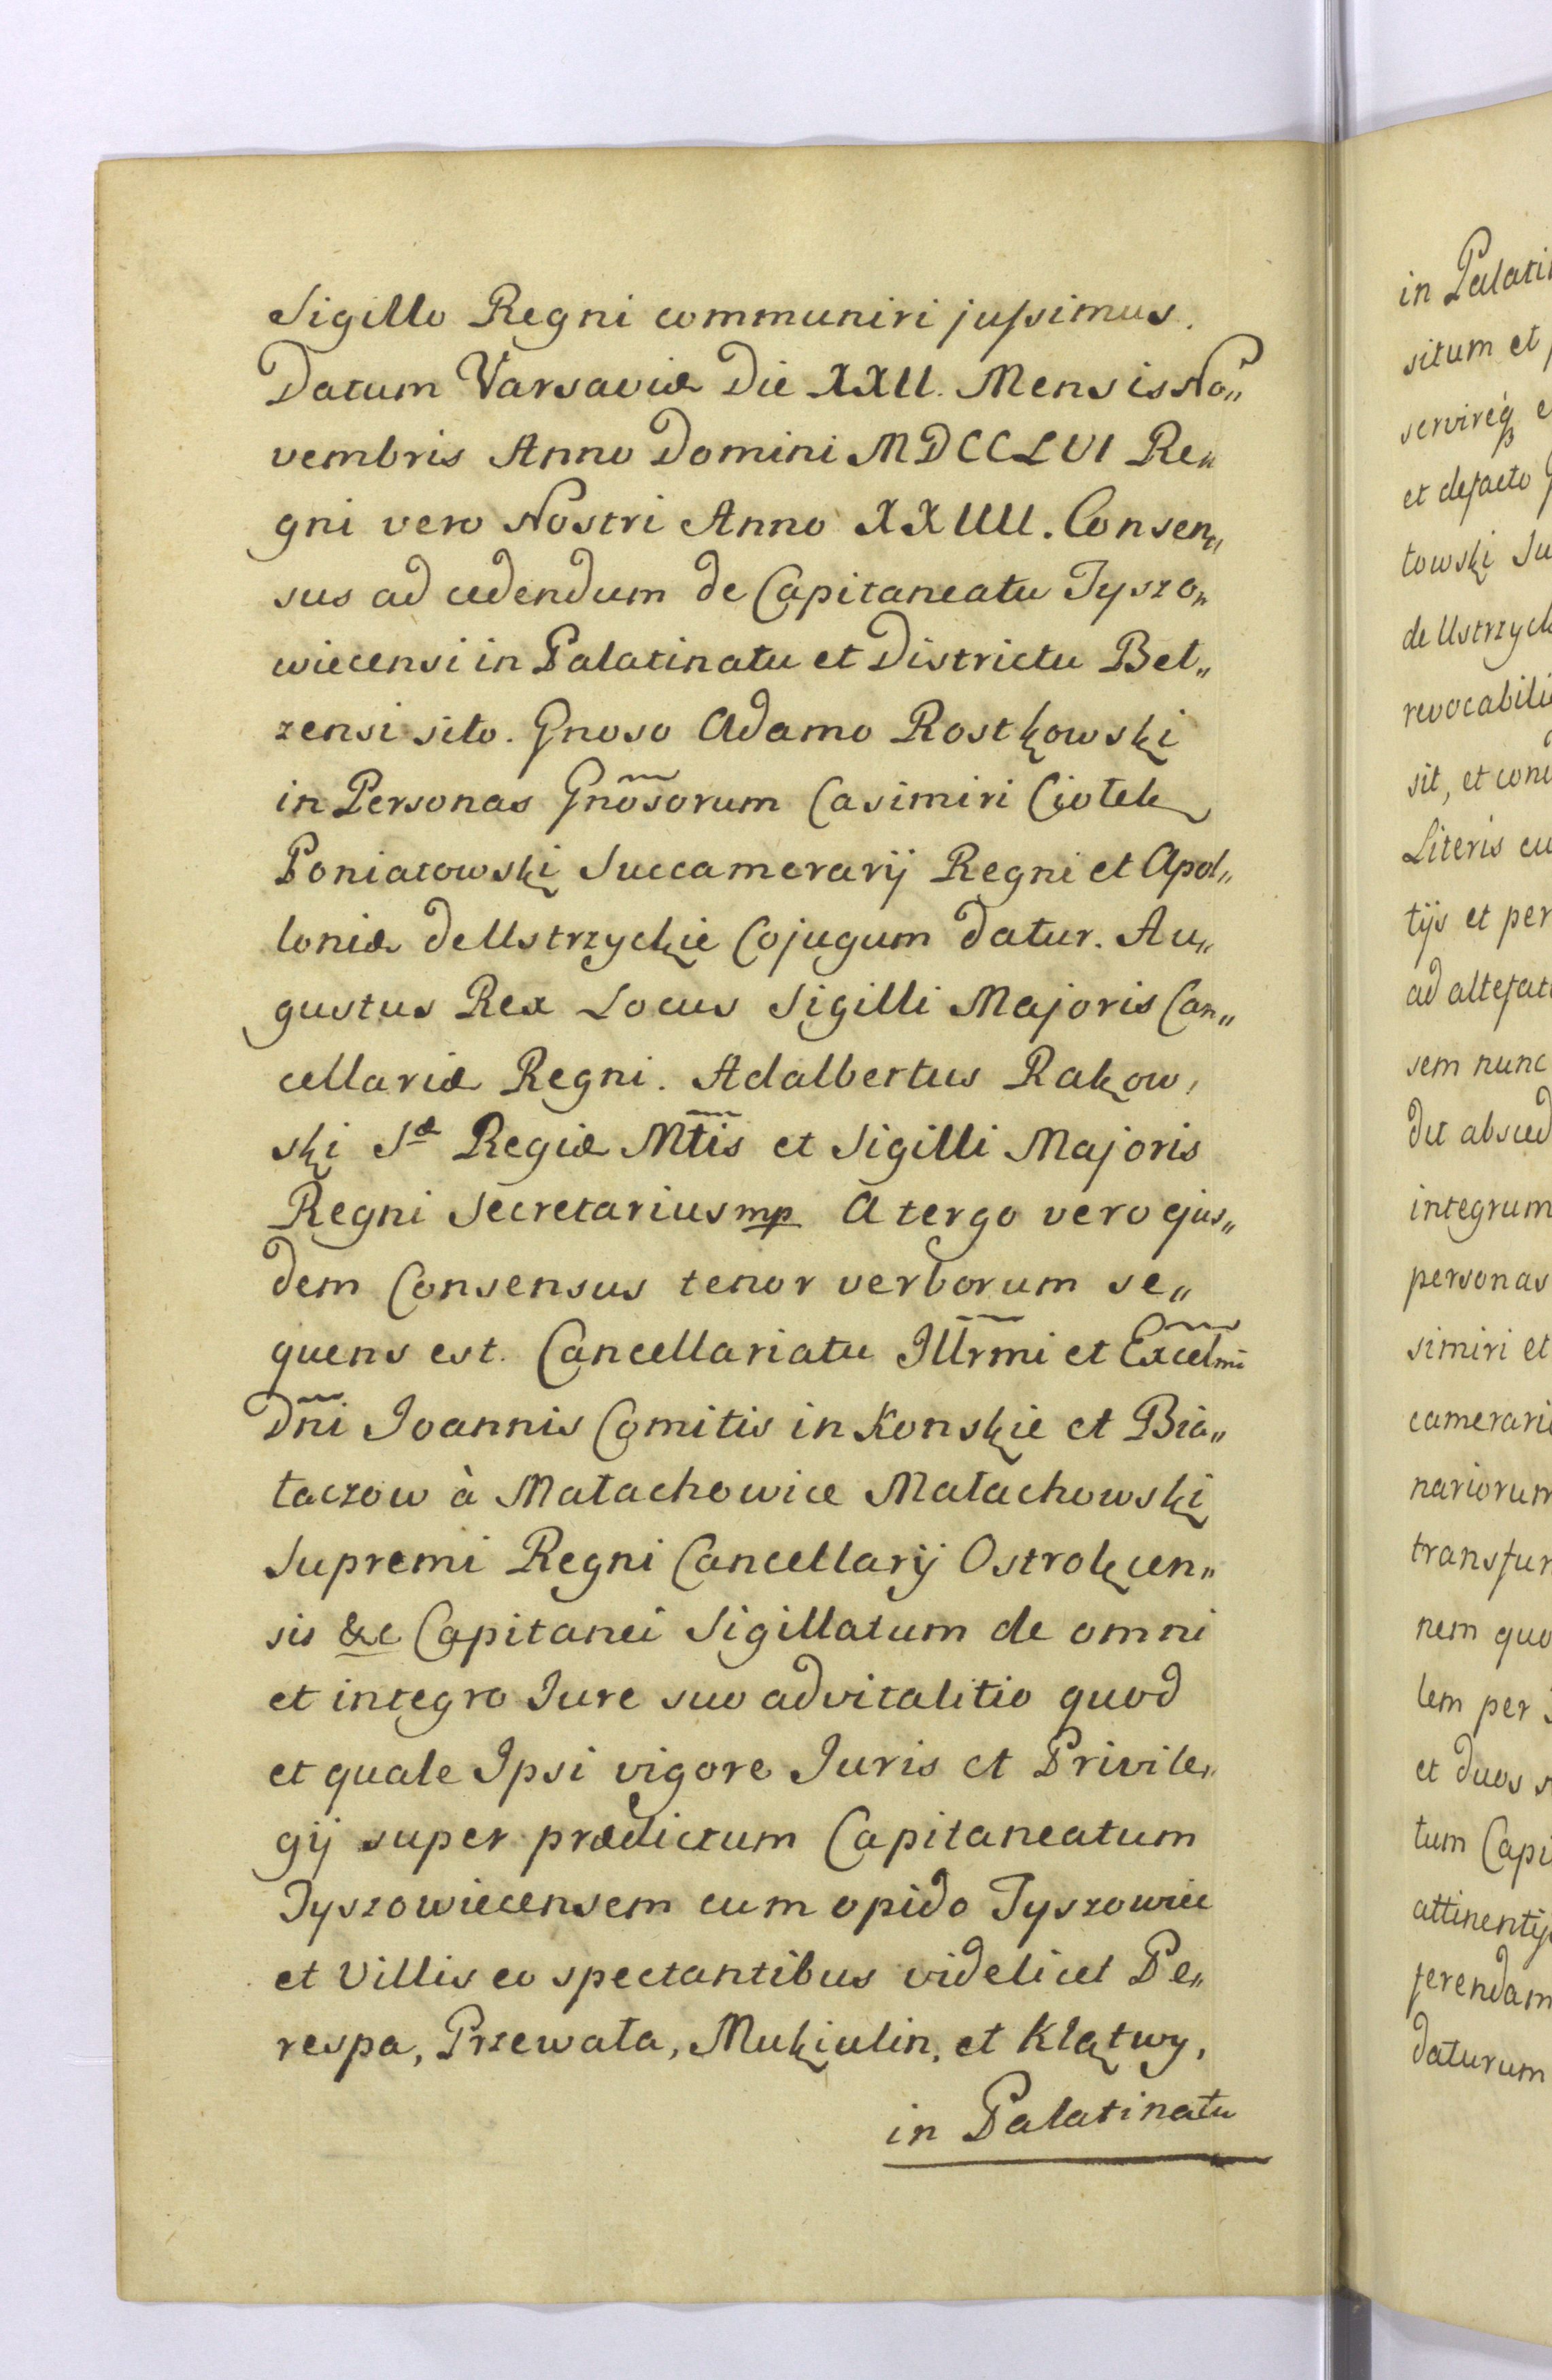 Sigillo Regni communiri jussimus.
Datum Varsaviæ Die XXII. Mensis No„
vembris Anno Domini MDCCLVI Re„
gni vero Nostri Anno XXIIII. Consen„
sus ad cedendum de Capitaneatu Tyszo„
wiecensi in Palatinatu et Districtu Bel„
zensi sito. Gnoso Adamo Rostkowski
in Personas Gnosorum Casimiri Ciołek
Poniatowski Succamerarij Regni et Apol„
loniæ de Ustrzyckie Cojugum datur. Au„
gustus Rex Locus Sigilli Majoris Can„
cellariæ Regni. Adalbertus Rakow,
ski Sæ Regiæ Mtis et Sigilli Majoris
Regni Secretarius mp A tergo vero ejus„
dem Consensus tenor verborum se„
quens est. Cancellariatu Illrmi et Excelmi
Dni Joannis Comitis in Konskie et Bia„
łaczow à Małachowice Małachowski
Supremi Regni Cancellarij Ostrołęcen„
sis &c Capitanei Sigillatum de omni
et integro Jure suo advitalitio quod
et quale Ipsi vigore Juris et Privile„
gij super prædictum Capitaneatum
Tyszowiecensem cum opido Tyszowiec
et Villis eo spectantibus videlicet Pe„
respa, Przewała, Mukiulin, et Klątwy,
in Palatinatu
in Palati
situm et
servireq e
et defacto
towski Su
de Ustrzyck
revocabili
sit, et con
Literis cu
tijs et per
ad altefat
sem nunc
integrum
personas
simiri et
camerari
nariorum
transfun
nem quo
lem per
et duos
tum Capi
attinentij
ferendam
daturum